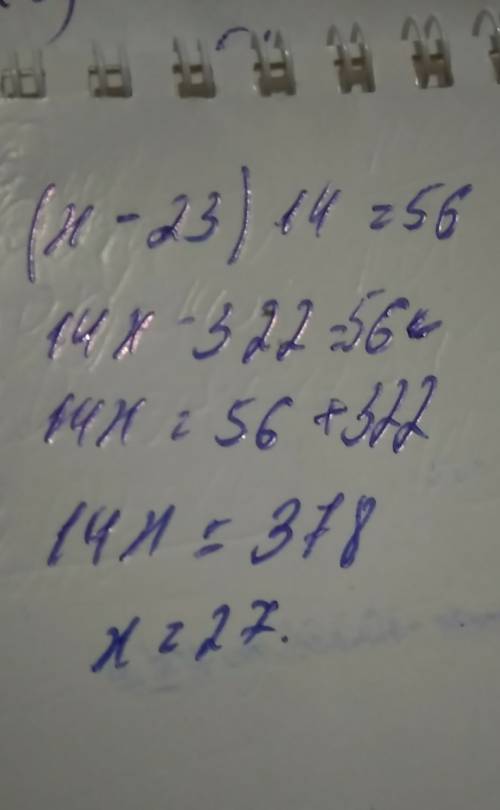 (x - 23) 14 = 56
14x - 322 = 56
14x = 56 + 322
14x = 378
x = 27.